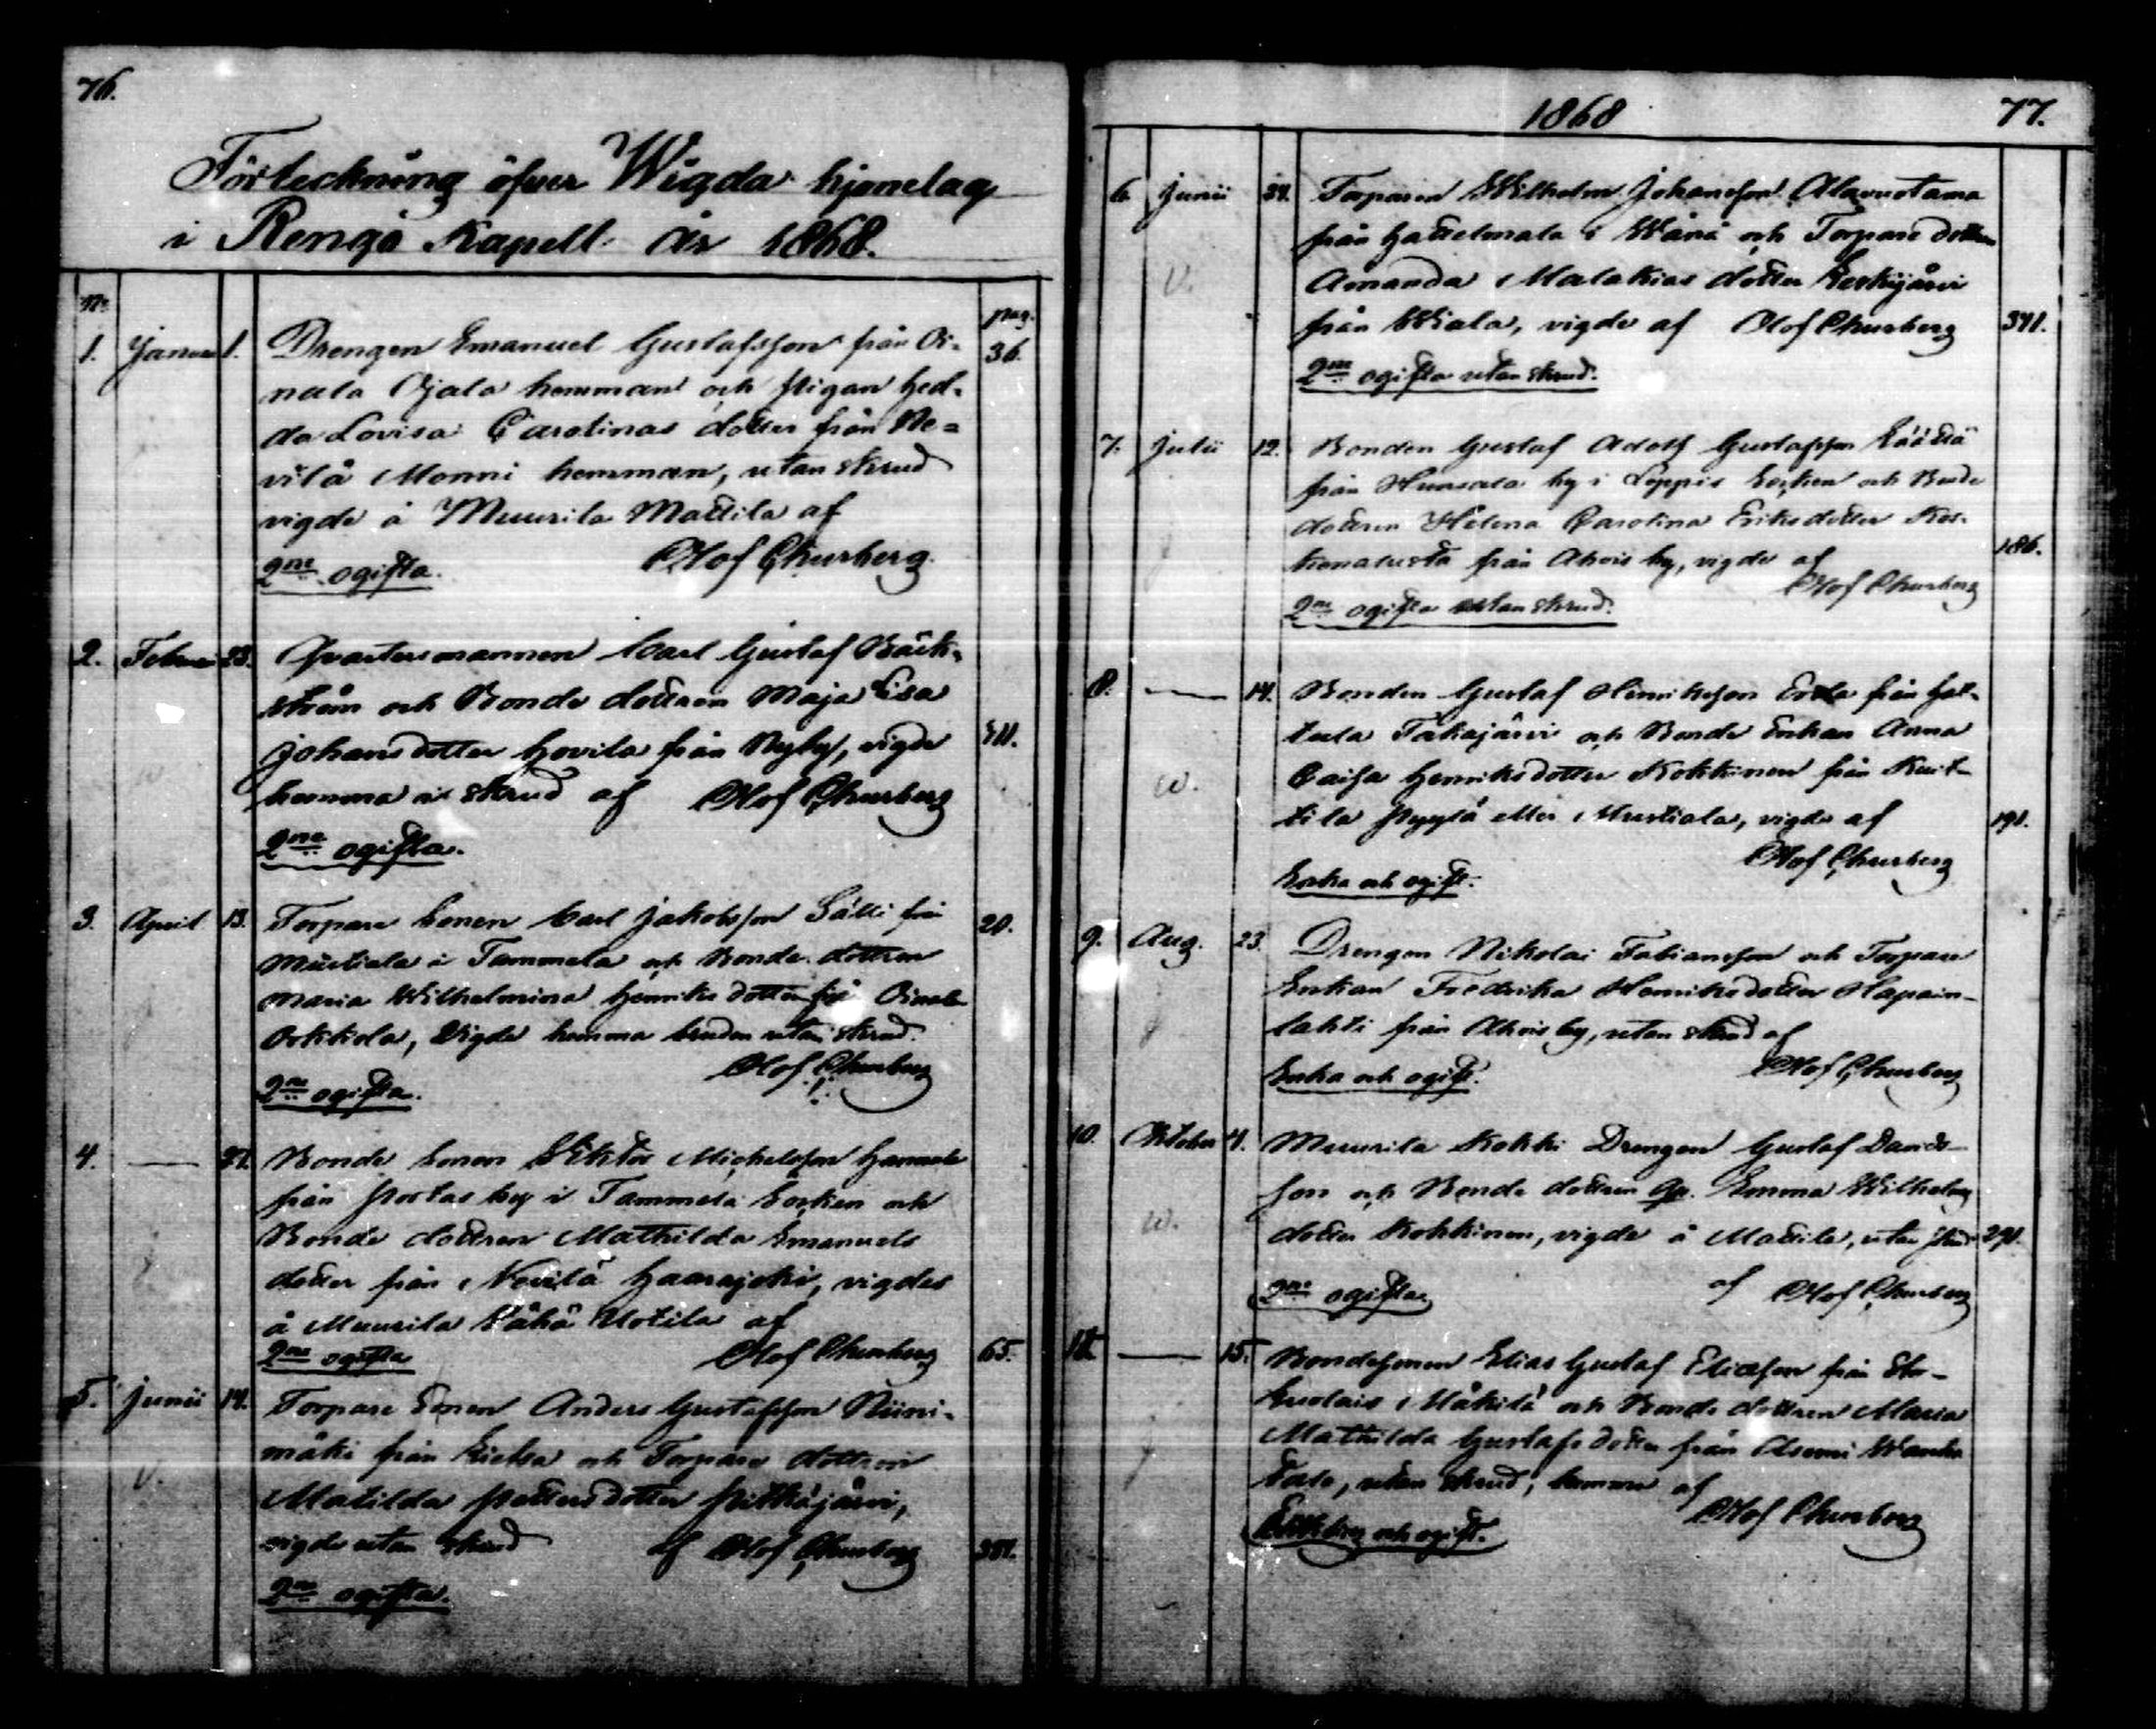 76.
Förteckning öfver Wigda hjonelag
i Rengo Kapell År 1868.
No
pag.
1. Januar 1. Drengen Emanuel Gustafsson från Oi-
36.
nala Ojala hemman och Pigan Hed-
da Lovisa Carolinas dotter från Ne-
vilä Monni hemman, utan skrud
vigde å Muurila Mattila af
2ne ogifta. Olof Churberg.
2. Februar 23. Qvartersmannen Carl Gustaf Bäck-
ström och Bonde dottren Maja Lisa
Johansdotter Hovila från Nyby, vigde
hemma i skrud af Olof Churberg
2ne ogifta.
3. April 13. Torpare Sonen Carl Jakobsson Sälli från
20.
Mustiala i Tammela och Bonde dottren
Maria Wilhelmina Henriks dotter från Oinala
Orkkola, Vigde hemma bruden utan skrud.
Olof Churberg
2ne ogifta.
4. — Bonde Sonen Viktor Michelsson
från Portas by i Tammela Socken och
Bonde dottren Mathilda Emanuels
dotter från Nevilä Haarajoki, vigdes
å Muurila Vähä Uotila af
2ne ogifta Olof Churberg 65.
5. Junii 14. Torpare Sonen Anders Gustafsson Niini-
mäki från och Torpare dottren
Matilda Petters dotter Pitkäjärvi,
vigde utan skrud af Olof Churberg
2ne ogifta.
1868
77.
6. Junii Torparen Wilhelm Johansson Alavuotama
från Hattelmala i Wånå och Torpare dottren
Amanda Malakias dotter Kerkijärvi
från Wiala, vigde af Olof Churberg
2ne ogifta utan skrud.
7. Julii 12. Bonden Gustaf Adolf Gustafsson
från by i Loppis Socken och Bonde
dottren Helena Carolina Eriksdotter Kos-
kenalusta från Ahvis by, vigde af
186.
Olof Churberg
2ne ogifta utan skrud.
8. — 14. Bonden Gustaf Henriksson från Hat-
tula Takajärvi och Bonde Enkan Anna
Caisa Henriksdotter Kokkinen från Kuit-
tila Pyylä eller Mustiala, vigde af
191.
Olof Churberg
Enka och ogift.
9. Aug. 23. Drengen Nikolai Fabiansson och Torpare
Enkan Fredrika Henriksdotter Hapain-
lahti från Ahvis by, utan skrud af
Enka och ogift. Olof Churberg
10. Oktober 4. Muurila Kokki Drengen Gustaf Davids-
son och Bonde dottren Emma Wilhelms
dotter Kokkinen, vigde å Mattila, utan skrud
af Olof Churberg
2ne ogifta
11. — 15. Bondesonen Elias Gustaf Eliasson från Sto-
huolais Mäkilä och Bonde dottren Maria
Mathilda Gustafs dotter från Asemi Wanha
talo, utan skrud, hemma af
Olof Churberg
Enkling och ogift.